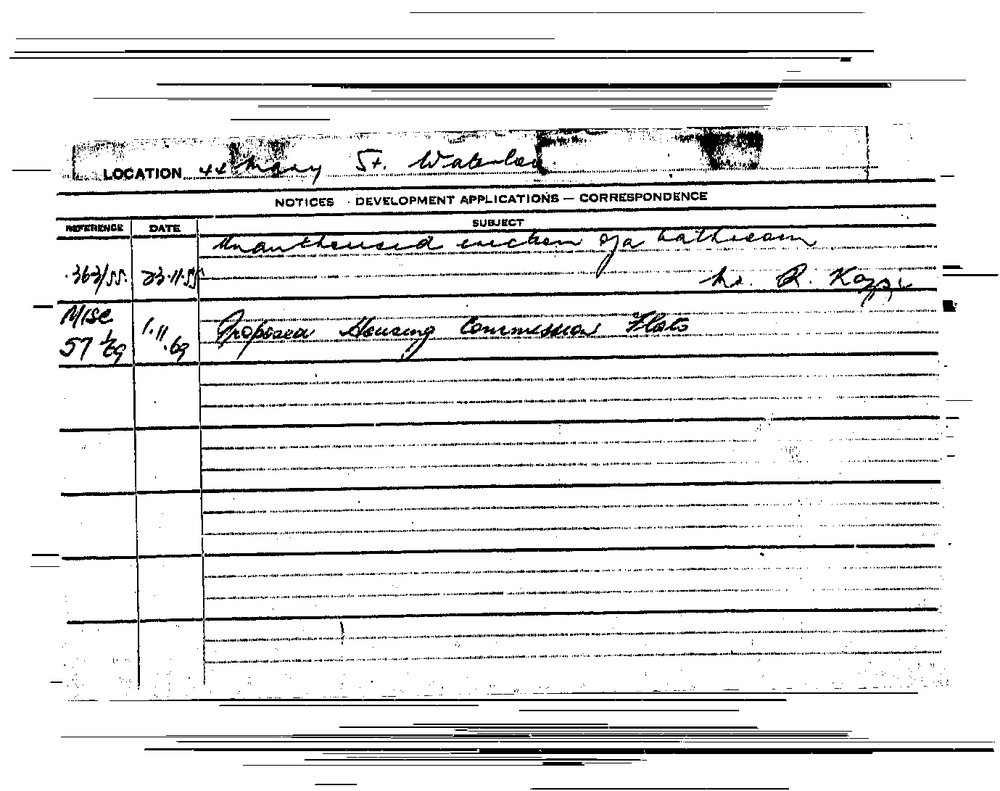 LOCATION 44 Mary St. Waterloo.
NOTICES · DEVELOPMENT APPLICATIONS — CORRESPONDENCE
REFERENCE DATE SUBJECT
Unauthorised erection of a bathroom
363/55. 23.11.55 Mr. R.
Misc
57 1/69 1.11.69 Proposed Housing Commission Flats